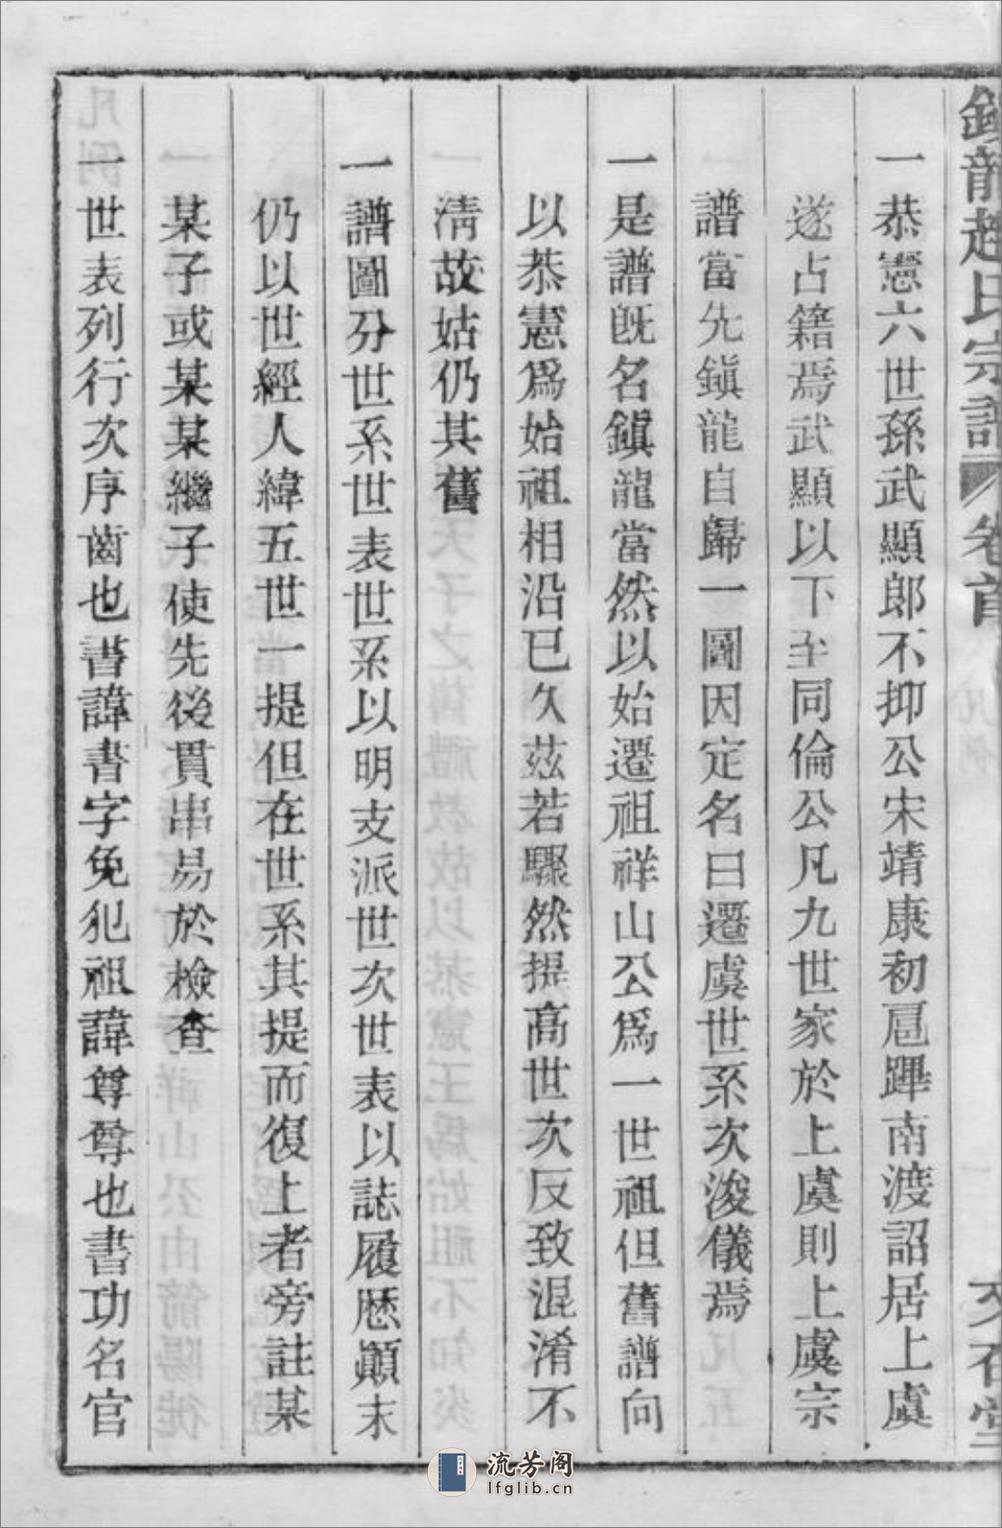 鎮龍趙氏宗譜 卷首
一恭憲六世孫武顯郎不抑公宋靖康初扈蹕南渡詔居上虞
遂占籍焉武顯以下至同倫公凡九世家於上虞則上虞宗
譜當先鎮龍自歸一圖因定名曰遷虞世系次浚儀焉
一是譜旣名鎮龍當然以始遷祖祥山公爲一世祖但舊譜向
以恭憲爲始祖相沿已久茲若驟然提高世次反致混淆不
淸故姑仍其舊
一譜圖分世系世表世系以明支派世次世表以誌履歷顚末
仍以世經人緯五世一提但在世系其提而復上者旁註某
某子或某某繼子使先後貫串易於檢查
一世表列行次序齒也書諱書字免犯祖諱尊尊也書功名官
流芳阁
lfglib.cn